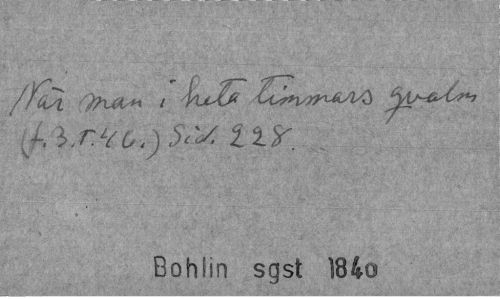 När man i heta timmars qvalm
(f. 3. T. 46.) Sid. 228.
Bohlin sgst 1840